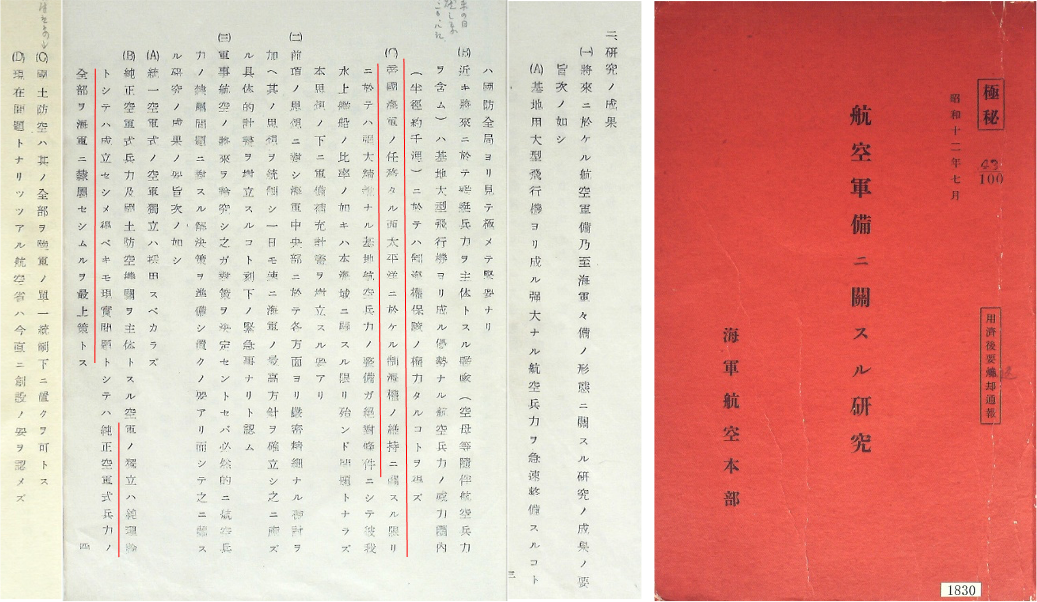 極秘
100
昭和十二年七月
航空軍備ニ關スル研究
用濟後要燒却通報
海軍航空本部
1830
二、研究ノ成果
㈠將來ニ於ケル航空軍備乃至海軍々備ノ形態ニ關スル研究ノ成果ノ要
旨次ノ如シ
(A)基地用大型飛行機ヨリ成ル强大ナル航空兵力ヲ急速整備スルコト
三
ハ國防全局ヨリ見テ極メテ緊要ナリ
(B)近キ將來ニ於テ艦艇兵力ヲ主体トスル艦隊(空母等隨伴航空兵力
ヲ含ム)ハ基地大型飛行機ヨリ成ル優勢ナル航空兵力ノ威力圈内
(半徑約千浬)ニ於テハ制海權保障ノ權力タルコトヲ得ズ
(C)帝國海軍ノ任務タル西太平洋ニ於ケル制海權ノ維持ニ關スル限リ
ニ於テハ强大精鋭ナル基地航空兵力ノ整備ガ絕對條件ニシテ彼我
水上艦船ノ比率ノ如キハ本海域ニ關スル限リ殆ンド問題トナラズ
本思想ノ下ニ軍備補充計畫ヲ樹立スル要アリ
㈡前項ノ思想ニ對シ海軍中央部ニ於テ各方面ヨリ機密精細ナル檢討ヲ
加ヘ其ノ思想ヲ統制シ一日モ速ニ海軍ノ最高方針ヲ確立シ之ニ應ズ
ル具体的計畫ヲ樹立スルコト刻下ノ緊急事ナリト認ム
㈢軍事航空ノ將來ヲ論究シ之ガ對策ヲ決定セントセバ必然的ニ航空兵
力ノ隷屬問題ニ對スル解決策ヲ準備シ置クノ要アリ而シテ之ニ關ス
ル研究ノ成果ノ要旨次ノ如シ
(A)統一空軍式ノ空軍獨立ハ採用スベカラズ
(B)純正空軍式兵力及國土防空機關ヲ主体トスル空軍ノ獨立ハ純理論
トシテハ成立セシメ得ベキモ現實問題トシテハ純正空軍式兵力ノ
全部ヲ海軍ニ隷屬セシムルヲ最上策トス
四
(C)國土防空ハ其ノ全部ヲ陸軍ノ單一統制下ニ置クヲ可トス
(D)現在問題トナリツツアル航空省ハ今直ニ創設ノ要ヲ認メズ